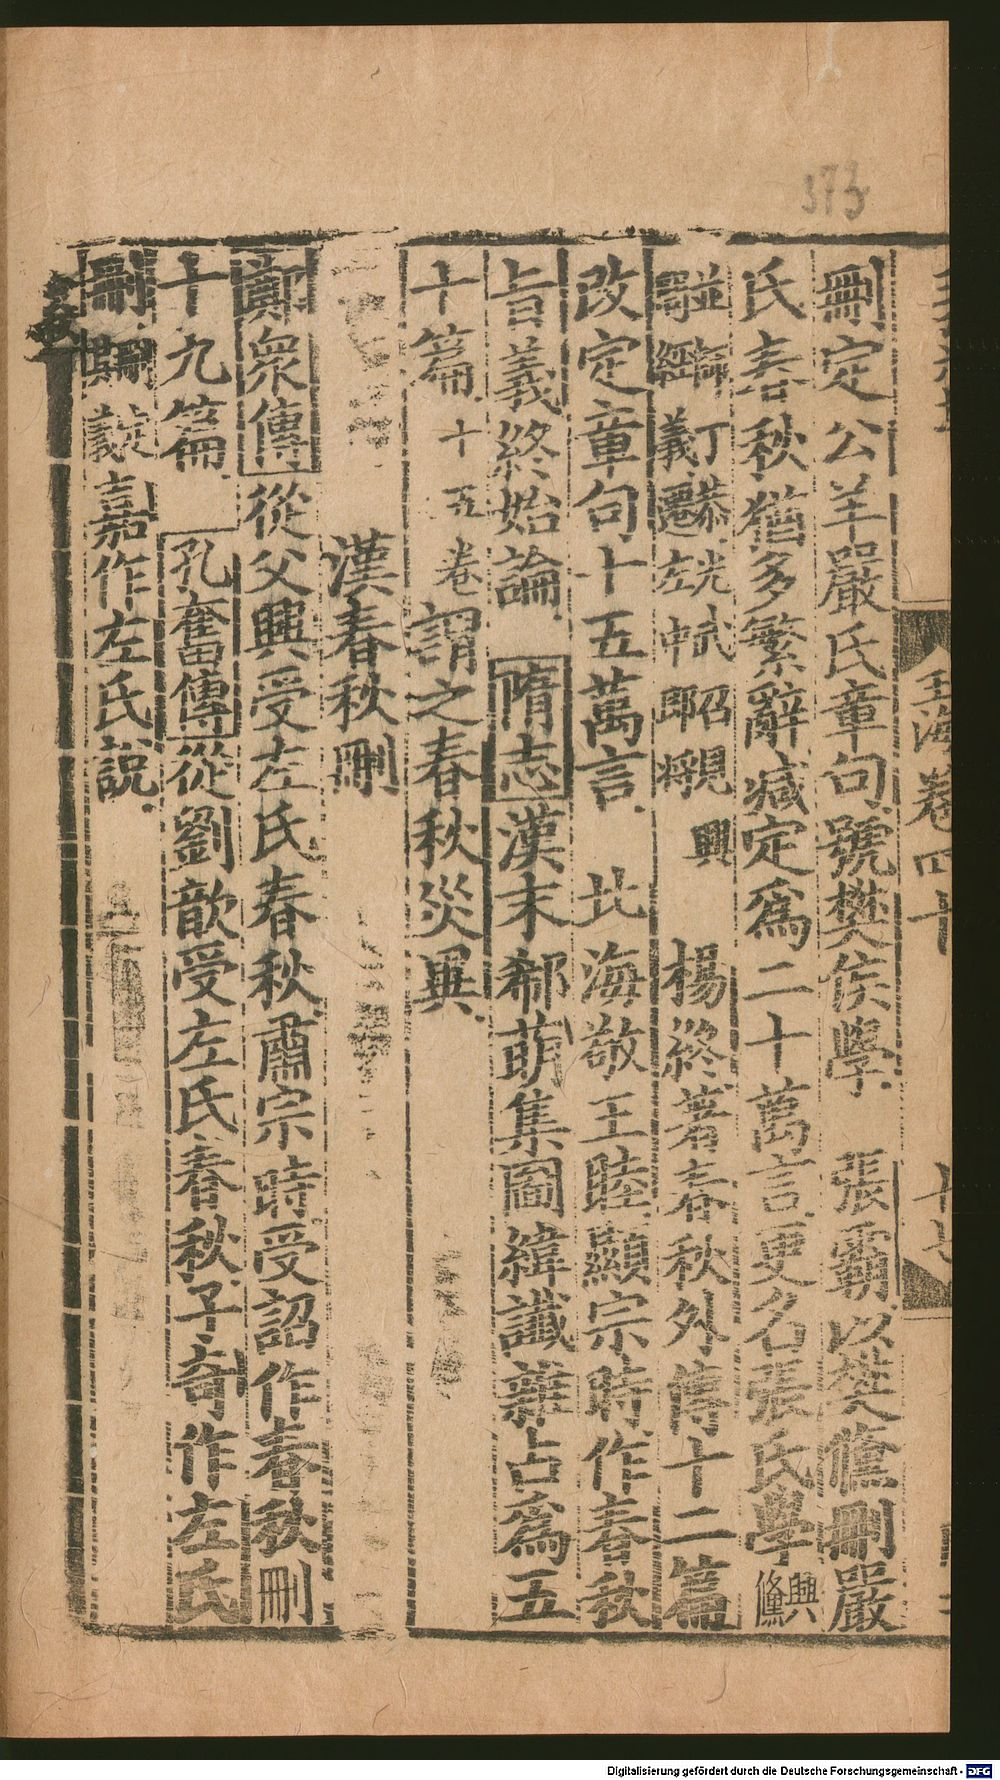 373
玉海卷四十
刪定公羊嚴氏章句號樊侯學 張霸以樊儵刪嚴
氏春秋猶多繁辭減定為二十萬言更名張氏學 興儵
丁恭 楊終著春秋外傳十二篇
改定章句十五萬言 北海敬王睦顯宗時作春秋
旨義終始論 隋志漢末郗萌集圖緯讖雜占為五
十篇 十五卷 謂之春秋災異
漢春秋刪
鄭衆傳從父興受左氏春秋肅宗時受詔作春秋刪
十九篇 孔奮傳從劉歆受左氏春秋子奇作左氏
刪 嘉作左氏說
Digitalisierung gefördert durch die Deutsche Forschungsgemeinschaft - DFG